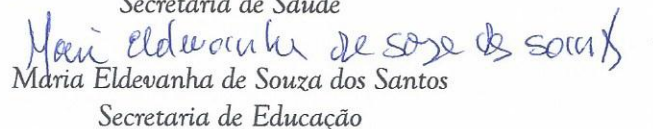 Secretaria de Saúde
Maria Eldevanha de Souza dos Santos
Maria Eldevanha de Souza dos Santos
Secretaria de Educação